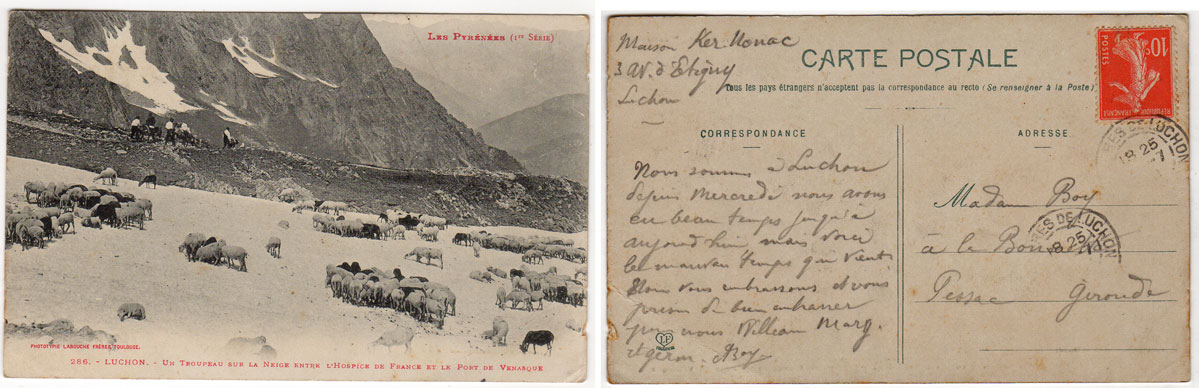 LES PYRÉNÉES (1re SÉRIE)
PHOTOTYPIE LABOUCHE FRÈRES, TOULOUSE.
286. - LUCHON. - UN TROUPEAU SUR LA NEIGE ENTRE L'HOSPICE DE FRANCE ET LE PORT DE VENASQUE
Maison Ker Nonac
3 av. d'Etigny
Luchon
CARTE POSTALE
Tous les pays étrangers n'acceptent pas la correspondance au recto (Se renseigner à la Poste)
POSTES
10c
REPUBLIQUE FRANÇAISE
CORRESPONDANCE
ADRESSE
DE LUCHON
18 25
Nous sommes à Luchon
depuis Mercredi nous avons
eu beau temps jusqu'à
aujourd'hui mais voici
le mauvais temps qui vient
vous embrassons et vous
prions de bien embrasser
pour nous William Marg.
et germ. Boy
Madame Boy
à le
Pessac Gironde
ES DE LUCHON
18 25
LF